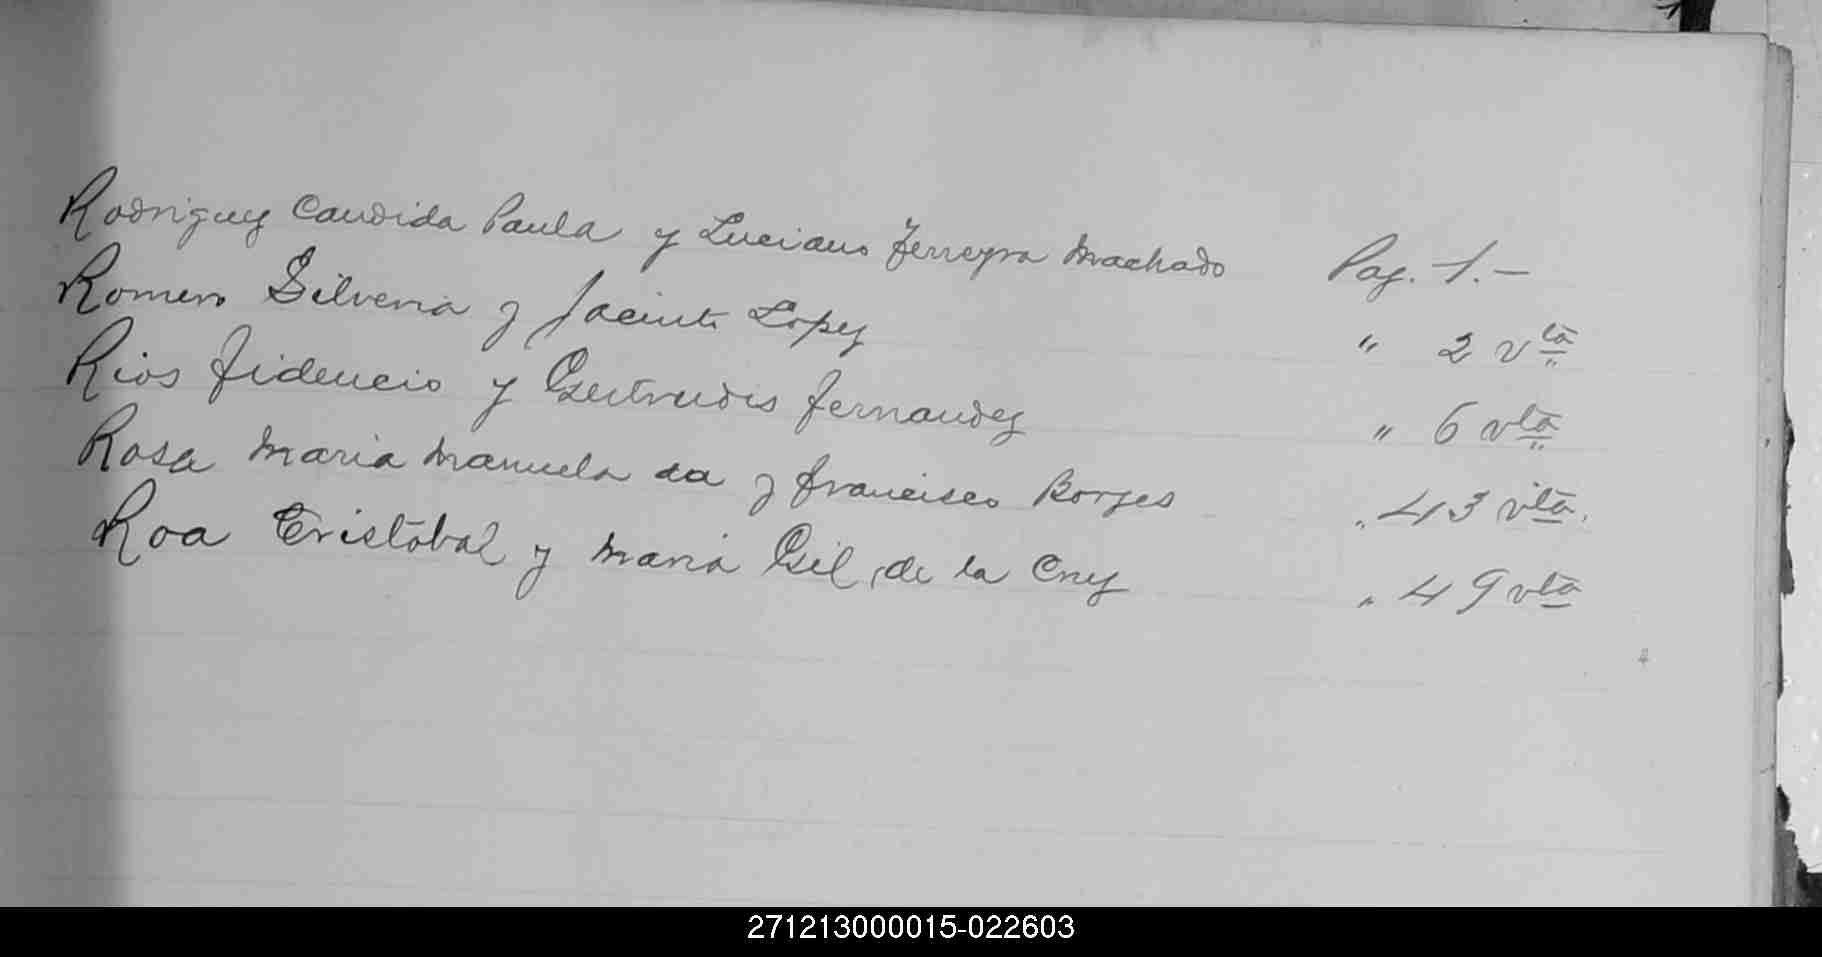 Rodriguez Candida Paula y Luciano Ferreyra Machado Pag. 1.-
Romero Silveria y Jacinto Lopez " 2 vta
Rios Fidencio y Gertrudis Fernandez " 6 vta
Rosa Maria Manuela da y Francisco Borges " 43 vta.
Roa Cristóbal y Maria Gil de la Cruz " 49 vta
271213000015-022603